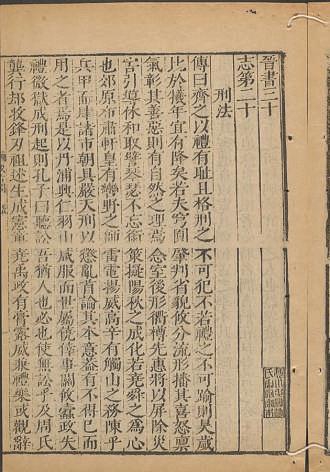 晉書三十
志第二十
刑法
傳曰齊之以禮有耻且格刑之不可犯不若禮之不可踰則昊歲
比於犧年宜有降矣若夫穹圓肇判省貌攸分流形播其喜怒稟
氣彰其善惡則有自然之理焉念室後形衢樽先惠將以屏除災
害引導休和取譬琴瑟不忘銜策擬陽秋之成化若堯舜之為心
也郊原布肅軒皇有轡野之師雷電揚威高辛有觸山之務陳乎
兵甲而肆諸市朝具嚴天刑以懲亂首論其本意蓋有不得已而
用之者焉是以丹浦興仁羽山咸服而世屬僥倖事關攸蠹政失
禮微獄成刑起則孔子曰聽訟吾猶人也必也使無訟乎及周氏
龔行却收鋒刃祖述生成憲章堯禹政有膏露威兼禮樂或觀辭